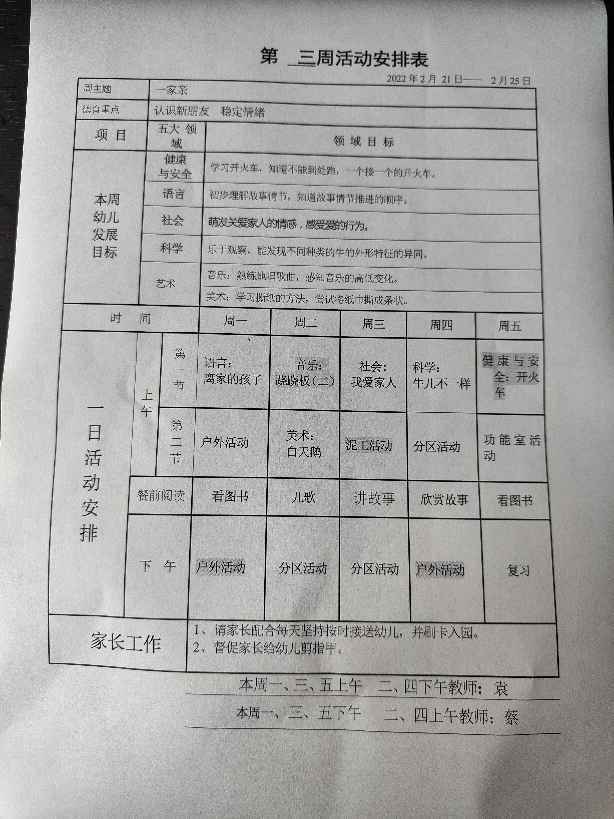 第 三周活动安排表
2022年2月21日—— 2月25日
周主题 一家亲
德育重点 认识新朋友 稳定情绪
项 目 五大 领域 领 域 目 标
本周幼儿发展目标
健康与安全 学习开火车，知道不能到处跑，一个接一个的开火车。
语言 初步理解故事情节，知道故事情节推进的顺序。
社会 萌发关爱家人的情感，感受爱的行为。
科学 乐于观察，能发现不同种类的牛的外形特征的异同。
艺术 音乐：熟练地唱歌曲，感知音乐的高低变化。
美术：学习撕纸的方法，尝试将纸巾撕成条状。
时 间 周一 周二 周三 周四 周五
一日活动安排
上午
第一节 语言：离家的孩子 音乐：跷跷板（二） 社会：我爱家人 科学：牛儿不一样 健康与安全：开火车
第二节 户外活动 美术：白天鹅 泥工活动 分区活动 功能室活动
餐前阅读 看图书 儿歌 讲故事 欣赏故事 看图书
下 午 户外活动 分区活动 分区活动 户外活动 复习
家长工作
1、请家长配合每天坚持按时接送幼儿，并刷卡入园。
2、督促家长给幼儿剪指甲。
本周一、三、五上午 二、四下午教师：袁
本周一、三、五下午 二、四上午教师：蔡